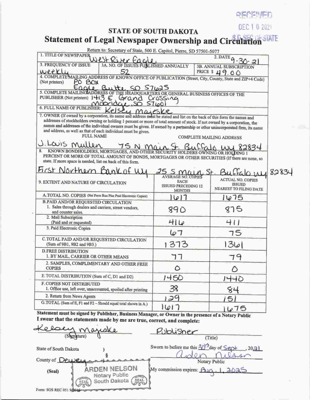 RECEIVED
DEC 10 2021
STATE OF SOUTH DAKOTA
Statement of Legal Newspaper Ownership and Circulation
Return to: Secretary of State, 500 E. Capitol, Pierre, SD 57501-5077
1. TITLE OF NEWSPAPER West River Eagle
2. DATE 9-30-21
3. FREQUENCY OF ISSUE weekly
3A. NO. OF ISSUES PUBLISHED ANNUALLY 52
3B. ANNUAL SUBSCRIPTION PRICE $ 49.00
4. COMPLETE MAILING ADDRESS OF KNOWN OFFICE OF PUBLICATION (Street, City, County, State and ZIP+4 Code) (Not printers)
PO Box
Eagle Butte, SD 57625
5. COMPLETE MAILING ADDRESS OF THE HEADQUARTERS OR GENERAL BUSINESS OFFICES OF THE PUBLISHER (Not printers) 1413 E. Grand Crossing
Mobridge, SD 57601
6. FULL NAME OF PUBLISHER: Kelsey Majeske
7. OWNER (If owned by a corporation, its name and address must be stated and also on the back of this form the names and addresses of stockholders owning or holding 1 percent or more of total amount of stock. If not owned by a corporation, the names and addresses of the individual owners must be given. If owned by a partnership or other unincorporated firm, its name and address, as well as that of each individual must be given).
FULL NAME
COMPLETE MAILING ADDRESS
J. Louis Mullen 75 N Main St. Buffalo, WY 82834
8. KNOWN BONDHOLDERS, MORTGAGES, AND OTHER SECURITY HOLDERS OWNING OR HOLDING 1 PERCENT OR MORE OF TOTAL AMOUNT OF BONDS, MORTGAGES OR OTHER SECURITIES (If there are none, so state. If more space is needed, list on back of this form.
First Northern Bank of WY 25 S Main St. Buffalo, WY 82834
9. EXTENT AND NATURE OF CIRCULATION
AVERAGE NO. COPIES EACH ISSUED PRECEDING 12 MONTHS
ACTUAL NO. COPIES ISSUED NEAREST TO FILING DATE
A. TOTAL NO. COPIES 1617 1675
B. PAID AND/OR REQUESTED CIRCULATION
1. Sales through dealers and carriers, street vendors, and counter sales. 890 875
2. Mail Subscription (Paid and or requested) 416 411
3. Paid Electronic Copies 67 75
C. TOTAL PAID AND/OR REQUESTED CIRCULATION (Sum of 9B1, 9B2 and 9B3.) 1373 1361
D. FREE DISTRIBUTION
1. BY MAIL, CARRIER OR OTHER MEANS 77 79
2. SAMPLES, COMPLIMENTARY AND OTHER FREE COPIES 0 0
E. TOTAL DISTRIBUTION (Sum of C, D1 and D2) 1450 1440
F. COPIES NOT DISTRIBUTED
1. Office use, left over, unaccounted, spoiled after printing 38 84
2. Return from News Agents 129 151
G. TOTAL (Sum of E, F1 and F2 - Should equal total shown in A.) 1617 1675
Statement must be signed by Publisher, Business Manager, or Owner in the presence of a Notary Public
I swear that the statements made by me are true, correct, and complete:
Kelsey Majeske Publisher
(Signature) (Title)
State of South Dakota
Sworn to before me this 30th day of Sept, 2021
County of Dewey
Arden Nelson
Notary Public
(Seal)
ARDEN NELSON
Notary Public
South Dakota
SEAL
My commission expires: Aug 1, 2025